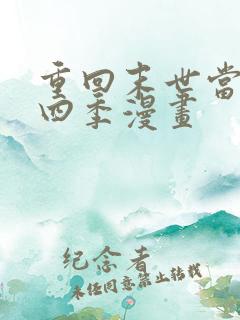 重回末世當
四季漫畫
纪念者
未经同意禁止转载